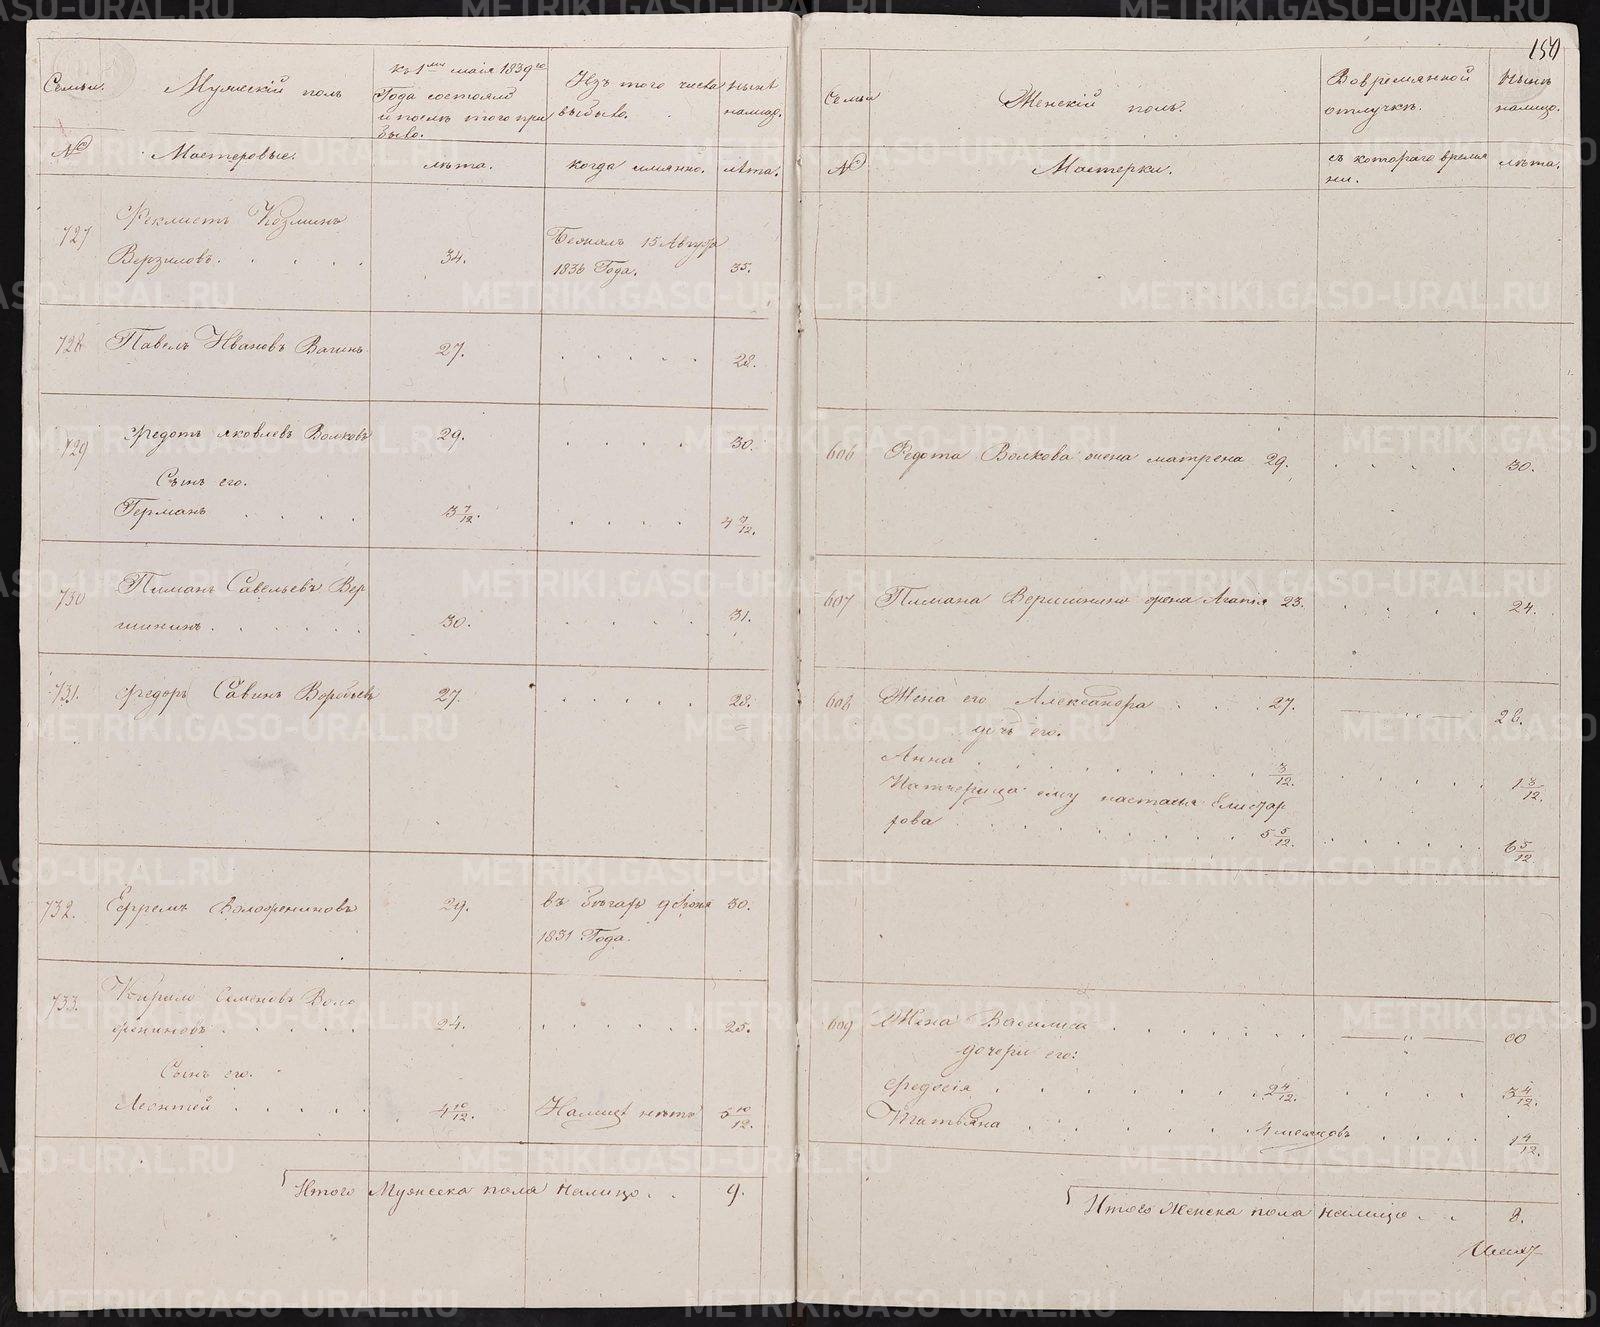 150
Семьи.
Мужескій полъ
къ 1му маія 1839го
Года состояло
и после того при
было.
Изъ того числа
выбыло.
ныне
налицо.
№
Мастеровые.
лета.
когда имянно.
лѣта.
727
Феклистъ Козминъ
Верзиловъ. . . . .
34.
Бежалъ 15 Августа
1836 Года.
35.
728
Павелъ Ивановъ Вагинъ
27.
. . . . .
28.
729
Федотъ яковлевъ Волковъ
29.
. . . .
30.
Сынъ его.
Германъ . . . .
3 7/12.
. . . .
4 7/12.
730
Пиманъ Савельевъ Вер
шининъ. . . . . .
30.
. . . . .
31.
731.
Федоръ Савинъ Воробьевъ
27.
. . . . .
28.
732.
Ефремъ Воложениновъ
29.
въ бегахъ 9 Июня
1831 Года.
30.
733.
Кирило Семеновъ Воло
жениновъ. . . . . .
24.
. . . . . .
25.
Сынъ его.
Леонтей . . . . .
4 10/12.
Налицѣ нѣтъ
5 10/12.
Итого Мужеска пола налицо. .
9.
Семьи
Женскій полъ.
Вовремянной
отлучкѣ.
Ныне
налицо.
№
Мастерки.
съ котораго время
ни.
лѣта.
606
Федота Волкова жена матрена 29.
. . . . .
30.
607
Пимана Вершинина жена Агапія 23.
. . . . .
24.
608
Жена его Александра . . . 27.
28.
дочь его.
Анна . . . . . . . . 3/12.
. . . . .
1 3/12.
Патчерица ему настасья Елистар
рова . . . . . . . . 5 5/12.
. . . . .
6 5/12
609
Жена Василиса . . . . . . .
00
дочери его:
Федосія . . . . . . . 2 4/12.
. . . .
3 4/12.
Татьяна . . . . . . 4 месяцовъ
. . . .
1 4/12.
Итого Женска пола налицо . .
8.
METRIKI.GASO-URAL.RU